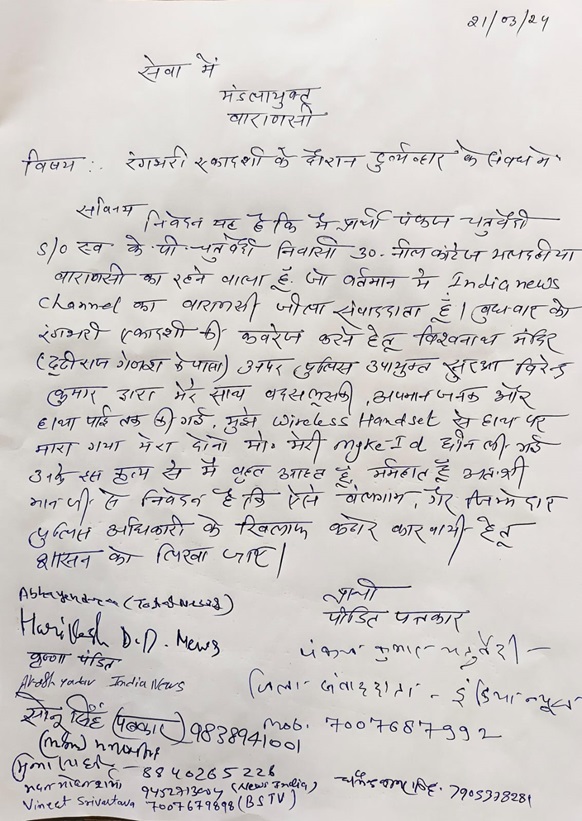 21/03/24
सेवा में
मंडलायुक्त
वाराणसी
विषय :. रंगभरी एकादशी के दौरान दुर्व्यवहार के संबंध में
सविनय
निवेदन यह है कि मै प्रार्थी पंकज चतुर्वेदी
S/o स्व के पी चतुर्वेदी निवासी 30. नील काटेज मलदहीया
वाराणसी का रहने वाला हूँ. जो वर्तमान मे India news
Channel का वाराणसी जीला संवाददाता हूँ। बुधवार को
रंगभरी एकादशी की कवरेज करने हेतू विश्वनाथ मंदिर
(ढूंढीराज गणेश के पास) अपर पुलिस उपायुक्त सुरक्षा विरेन्द्र
कुमार द्वारा मेरे साथ बदसलूसकी, अपमान जनक और
हाथा पाई तक की गई, मुझे Wireless Handset से हाथ पर
मारा गया मेरा दोनो मो. मेरी Myke-Id छीन ली गई
उनके इस कृत्य से मै आहत हूँ, मर्माहत हूँ अतः श्री
मान जी से निवेदन है कि ऐसे बेलगाम, गैर जिम्मेदार
पुलिस अधिकारी के खिलाफ कठोर कारवायी हेतू
शासन को लिखा जाए।
प्रार्थी
पीडित पत्रकार
पंकज कुमार चतुर्वेदी
जिला संवाददाता - इंडिया न्यूज
Mob. 7007687992
Harikesh D.D. News
कृष्णा पंडित
Yadav India News
सोनू सिंह (पत्रकार) 9838941001
8840265226
9452713004 (News India)
Vineet Srivastava 7007679898 (BSTV)
7905378281